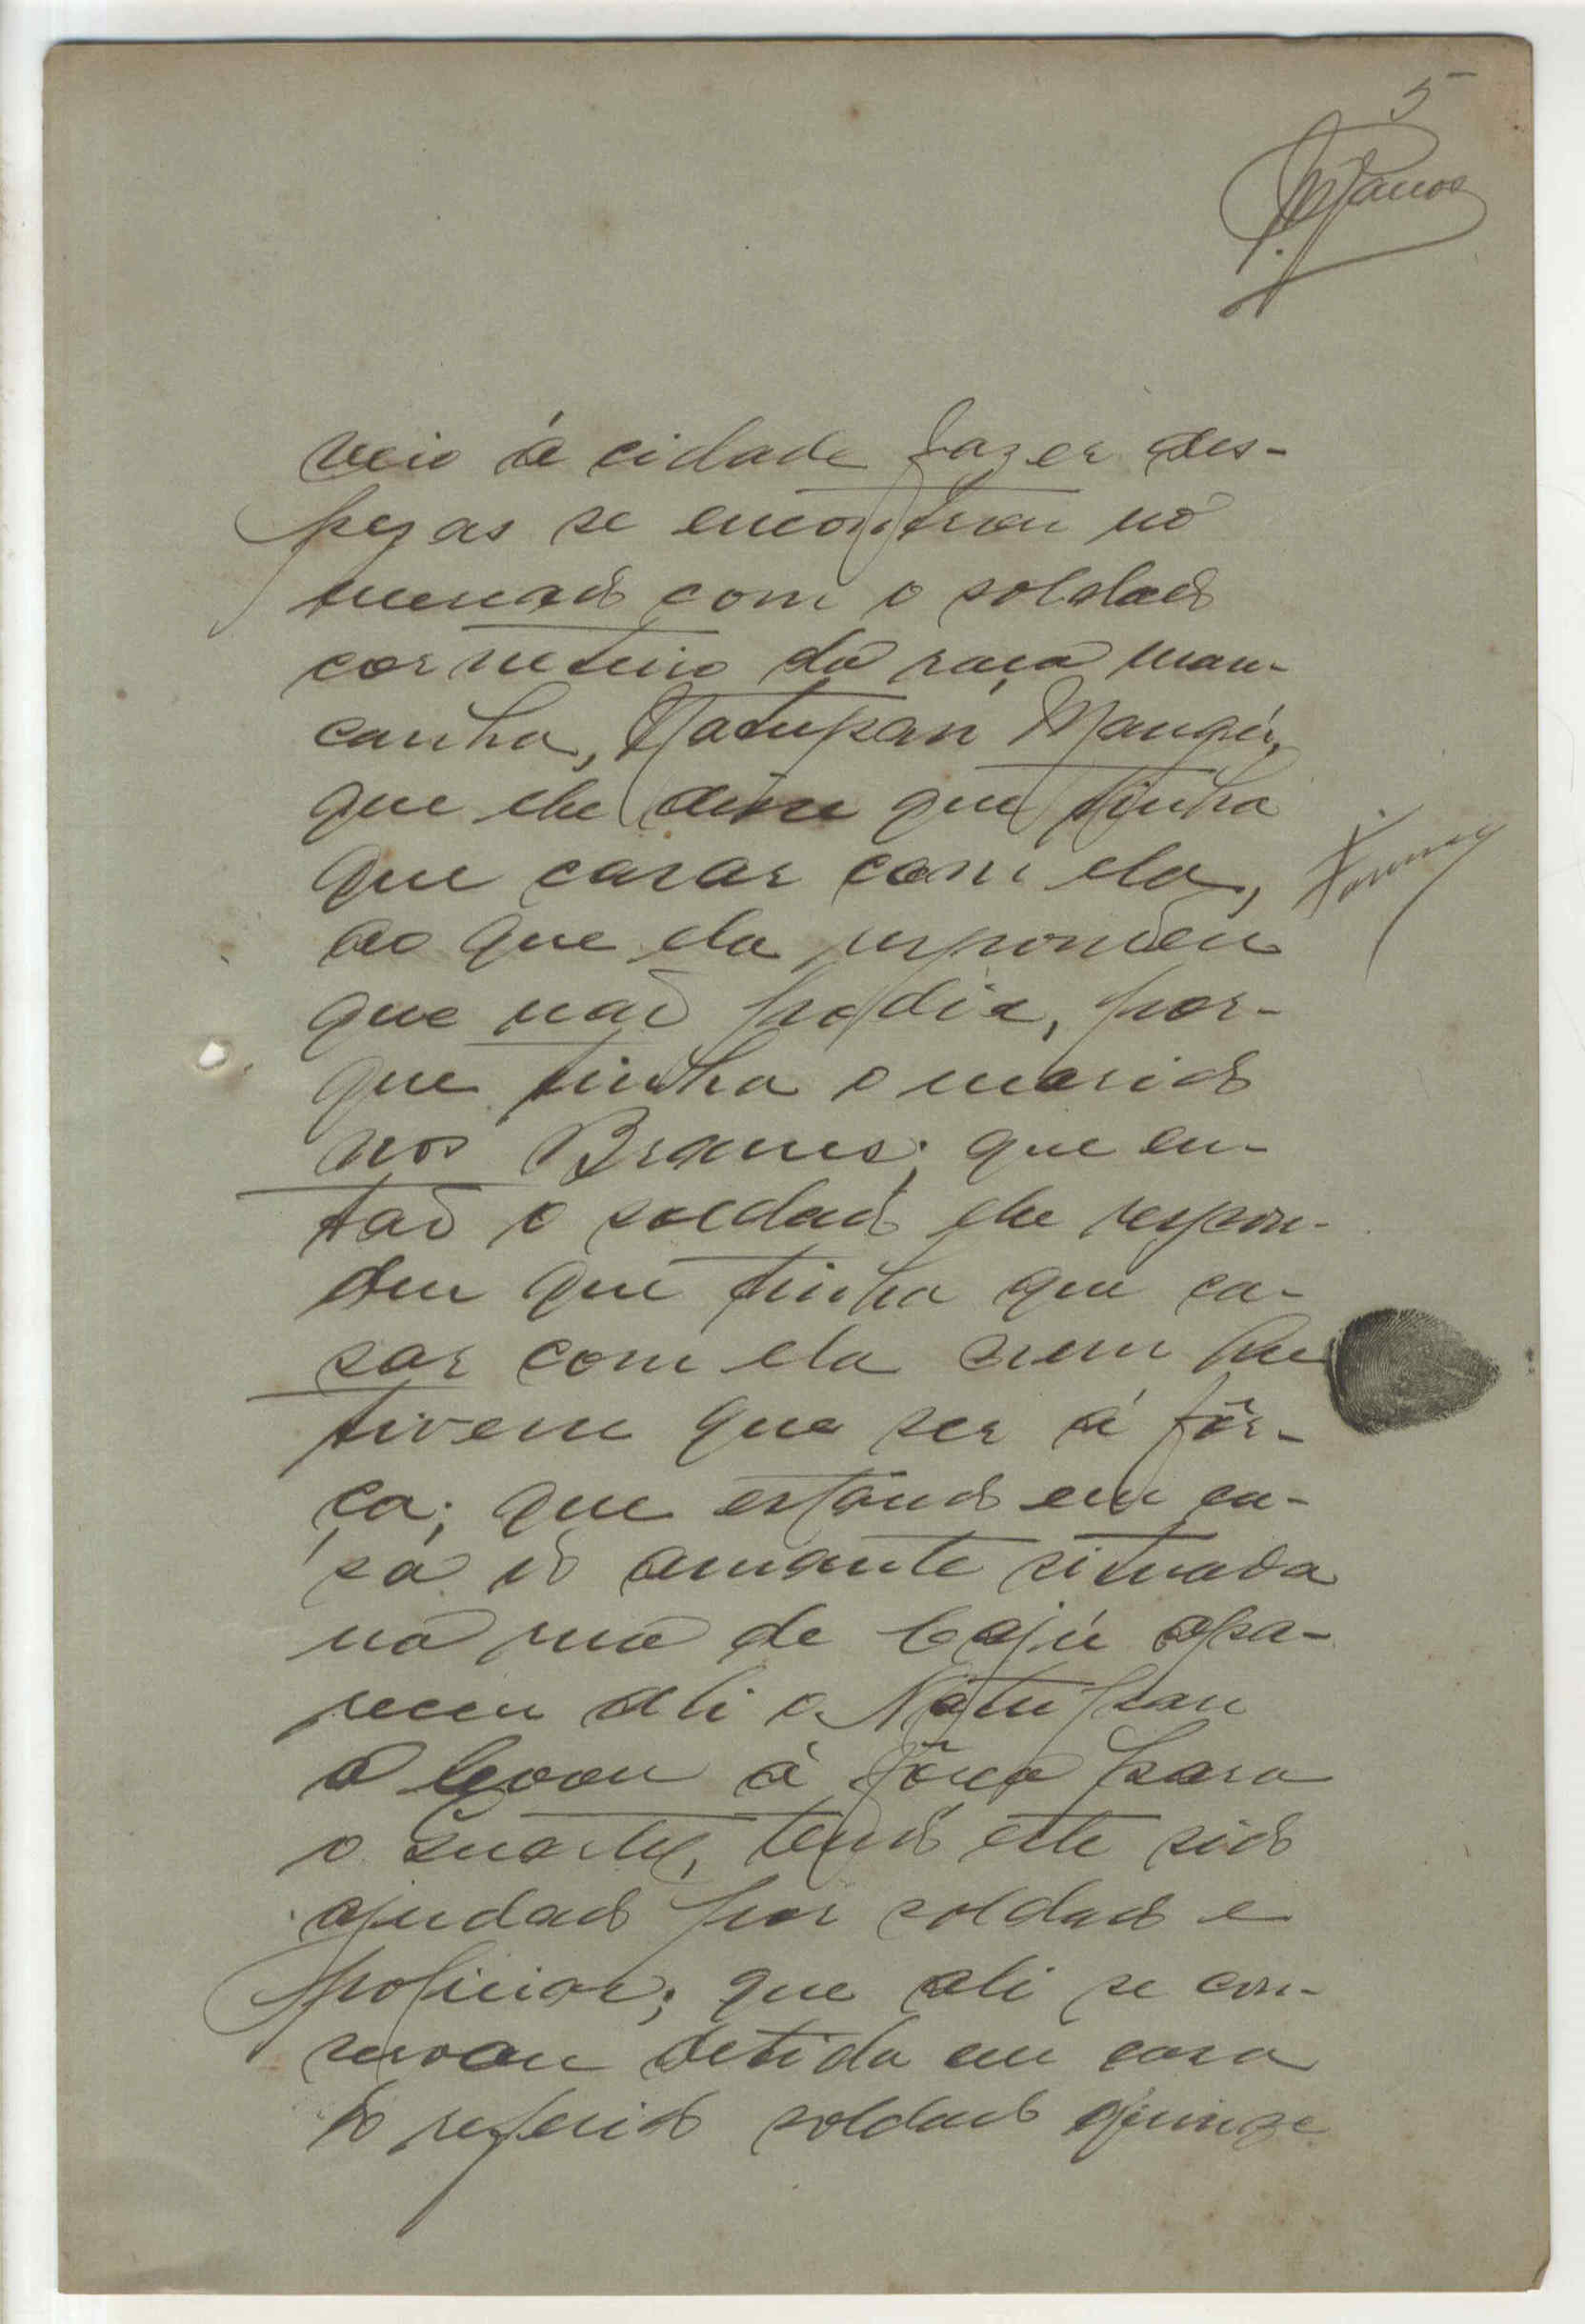 5
veio á cidade fazer des-
pezas se encontrou no
mercado com o soldado
corneteiro da raça man-
canha, Natupan Mangú,
que lhe disse que tinha
que casar com ela,
ao que ela respondeu
que não podia, por-
que tinha o marido
nos Brames; que en-
tão o soldado lhe respon-
deu que tinha que ca-
sar com ela nem que
tivesse que ser á fôr-
ça; que estando em ca-
sa do amante situada
na rua de Cajú apa-
receu ali o Natupan
a levou á fôrça para
o Quartel, tendo este sido
ajudado por soldado e
policiar; que ali se con-
servou detida em casa
do referido soldado quinze